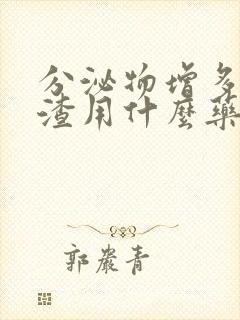 分泌物增多
渣用什麼藥
郭嚴青